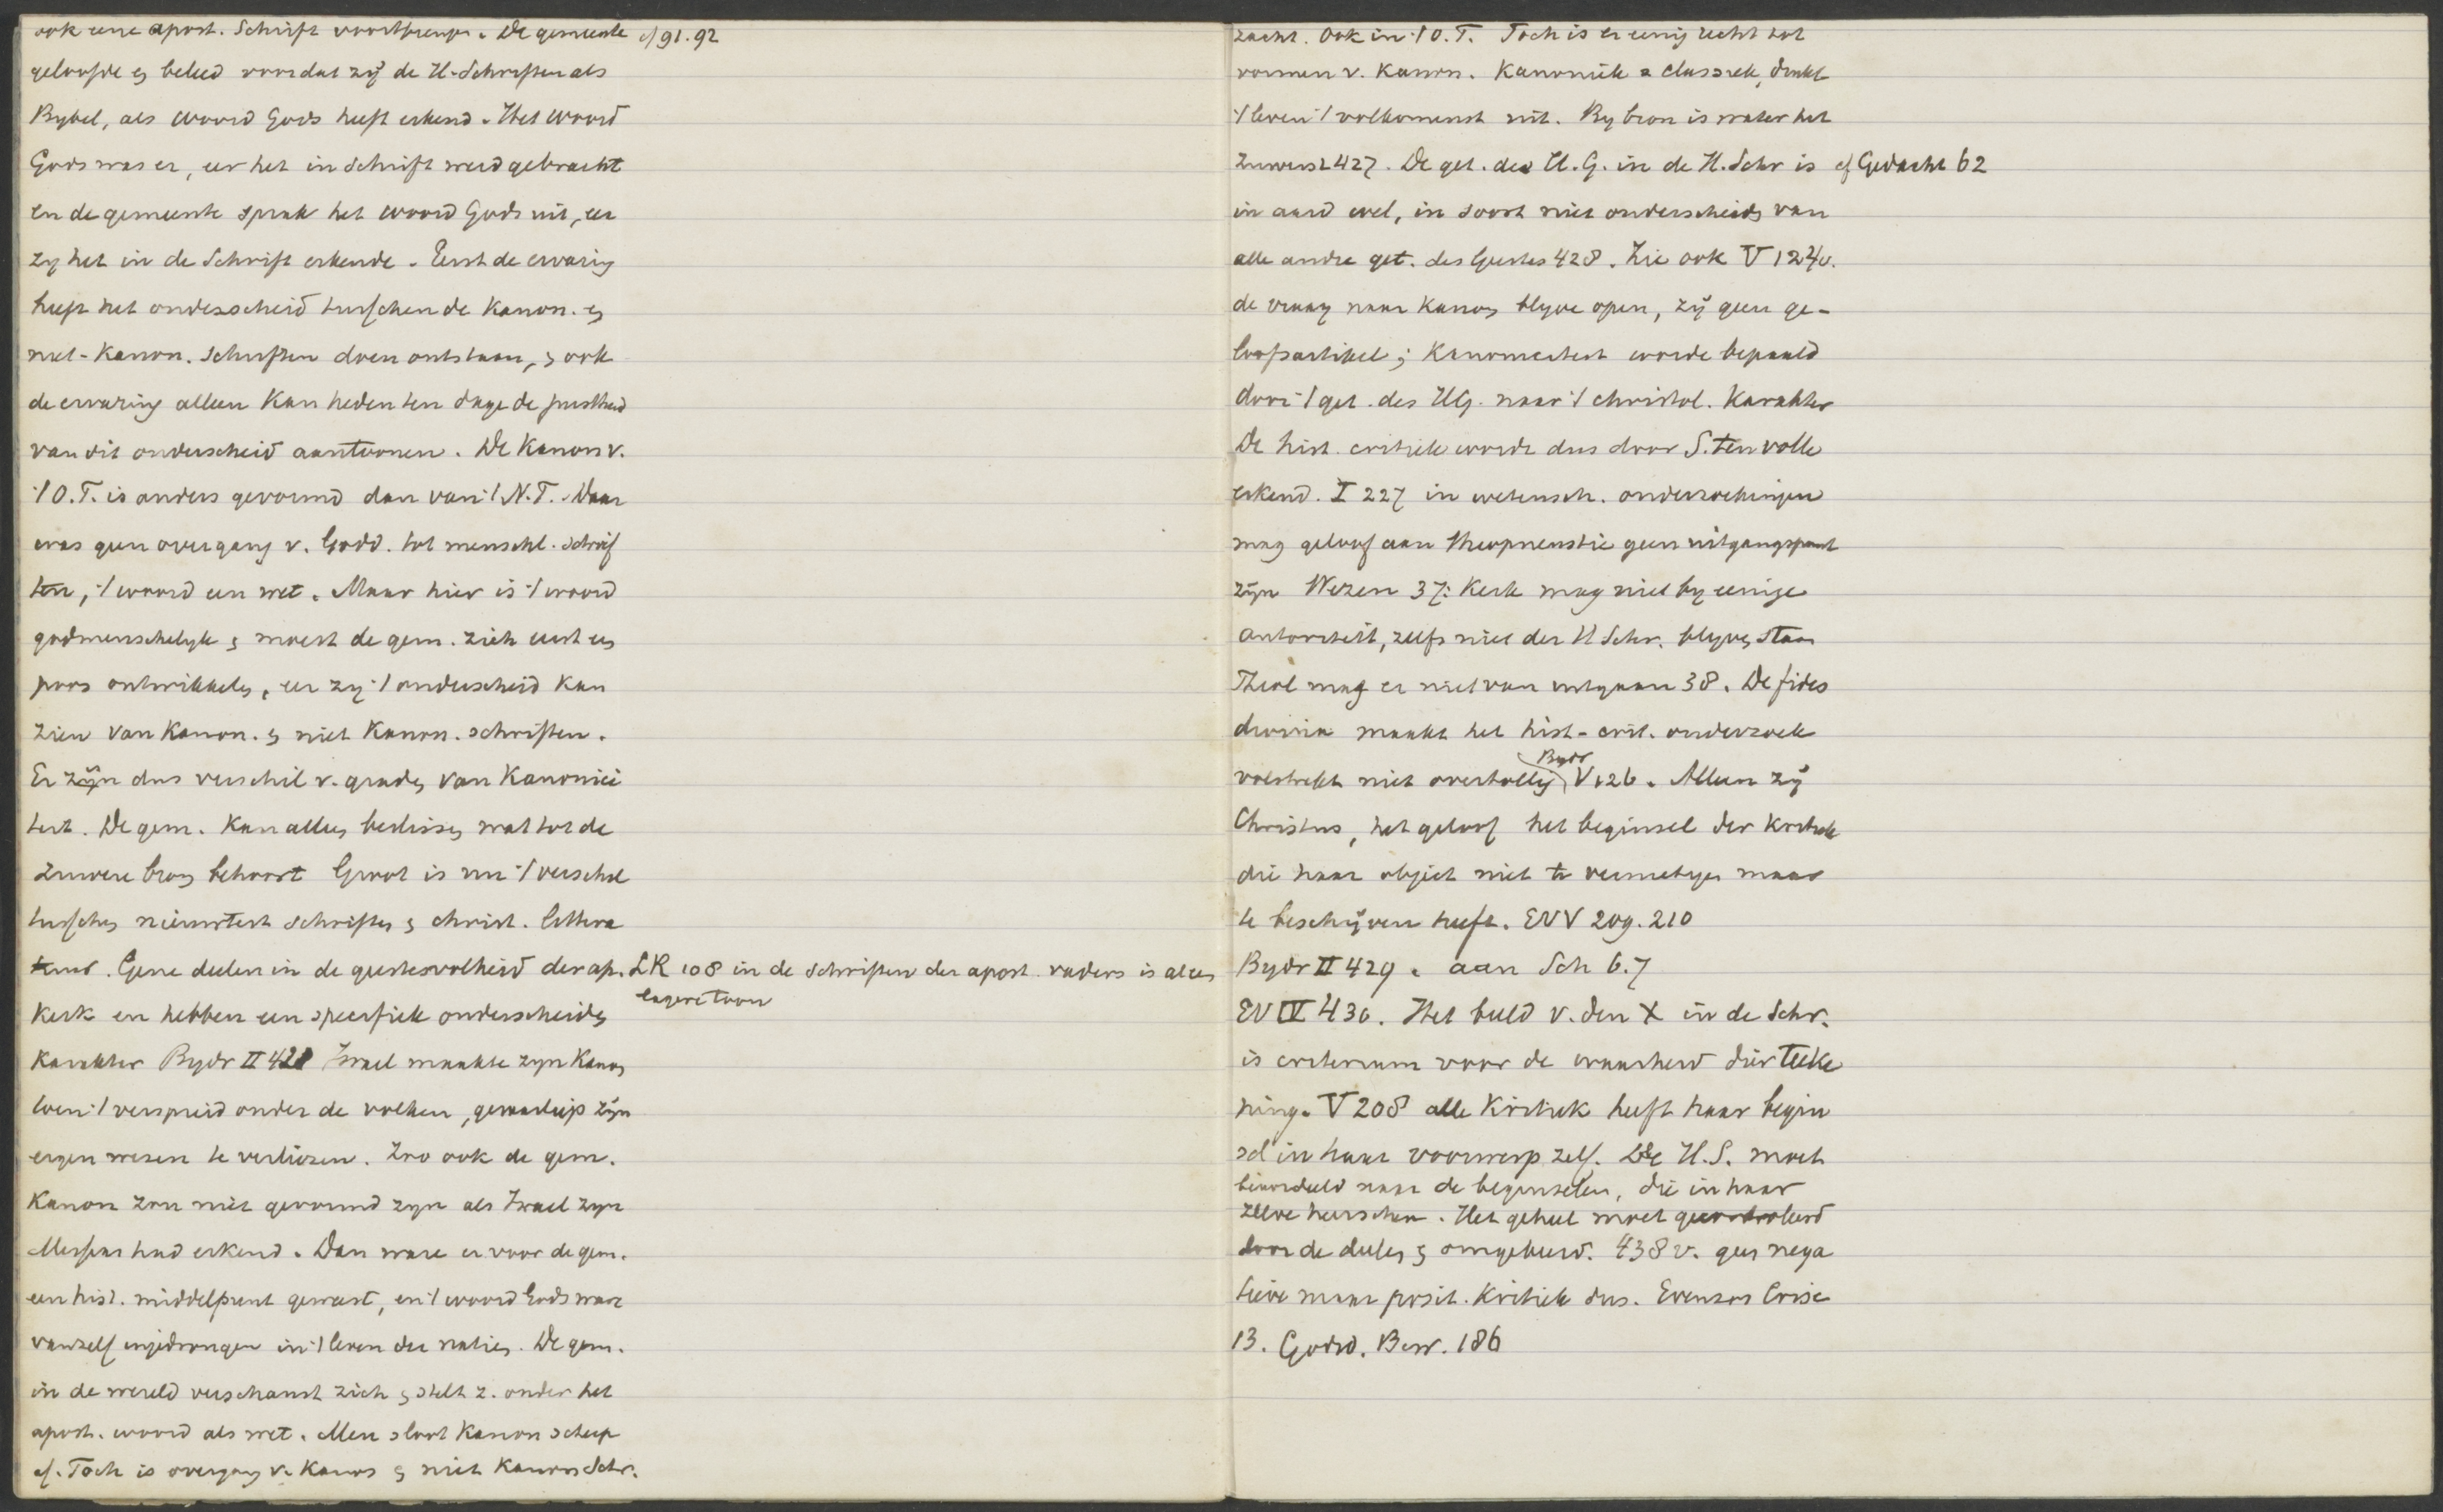 ook eene apost. Schrift voortbrengen. De gemeente cf 91.92
geloofde en beleed voordat zij de H. Schriften als
Bybel, als woord Gods heeft erkend. Het woord
Gods was er, eer het in schrift werd gebracht
en de gemeente sprak het woord Gods uit, eer
zy het in de Schrift erkende. Eerst de ervaring
heeft het onderscheid tusschen de Kanon. en
niet-Kanon. Schriften doen ontstaan, en ook
de ervaring alleen kan heden ten dage de juistheid
van dit onderscheid aantoonen. De Kanon v.
't O.T. is anders gevormd dan van 't N.T. Daar
was geen overgang v. Godd. tot menschl. schrif
ten, 't woord een wet. Maar hier is 't woord
godmenschelyk en moest de gem. zich eerst een
poos ontwikkelen, eer zy 't onderscheid kan
zien van Kanon. en niet Kanon. schriften.
Er zijn dus verschil v. graden van Kanonici
teit. De gem. kan alleen beslissen wat tot de
zuivere bron behoort Groot is nu 't verschil
tusschen nieuwtest schriften en christ. littera
tuur. Gene deelen in de geestesvolheid der ap.
LK 108 in de schriften der apost. vaders is al een
lagere toon
Kerk en hebben een specifiek onderscheiden
karakter Bydr II 428 Israel maakte zyn Kanon
toen 't verspreid onder de volken, gevaar liep zijn
eigen wezen te verliezen. Zoo ook de gem.
Kanon zou niet gevormd zyn als Israel zyn
Messias had erkend. Dan ware er voor de gem.
een hist. middelpunt geweest, en 't woord Gods ware
vanzelf ingedrongen in 't leven der natien. De gem.
in de wereld verschanst zich en stelt z. onder het
apost. woord als wet. Men sloot Kanon scherp
af. Toch is overgang v. Kanon en niet Kanon Schr.
zacht. Ook in 't O.T. Toch is er eenig recht tot
vormen v. Kanon. Kanoniek = classiek, drukt
't leven 't volkomenst uit. By bron is water het
zuiverst 427. De get. des H.G. in de H. Schr is cf Gedacht 62
in aard wel, in soort niet onderscheiden van
alle andre get. des Geestes 428. Zie ook V 124v.
de vraag naar Kanon blyve open, zij geen ge-
loofsartikel; Kanoniciteit worde bepaald
door 't get. des HG. naar 't christol. Karakter
De hist. critiek wordt dus door S. ten volle
erkend. I 227 in wetensch. onderzoekingen
mag geloof aan theopneustie geen uitgangspunt
zijn Wezen 37: Kerk mag niet by eenige
autoriteit, zelfs niet der H Schr. blyven staan
Theol mag er niet van uitgaan 38. De fides
divina maakt het hist-crit. onderzoek
volstrekt niet overtollig Bydr V 126. Alleen zij
Christus, het geloof het beginsel der kritiek
die haar object niet te vernietigen maar
te beschrijven heeft. EV V 209. 210
Bydr II 429. aan Sch 6.7
EV IV 436. Het beeld v. den X in de Schr.
is criterium voor de waarheid dier teeke
ning. V 208 alle Kritiek heeft haar begin
sel in haar voorwerp zelf. De H.S. moet
beoordeeld naar de beginselen, die in haar
zelve heerschen. Het geheel moet gecontroleerd
door de deelen en omgekeerd. 438 v. geen nega
tieve maar posit. Kritiek dus. Evenzoo Crise
13. Godsd. Bew. 186